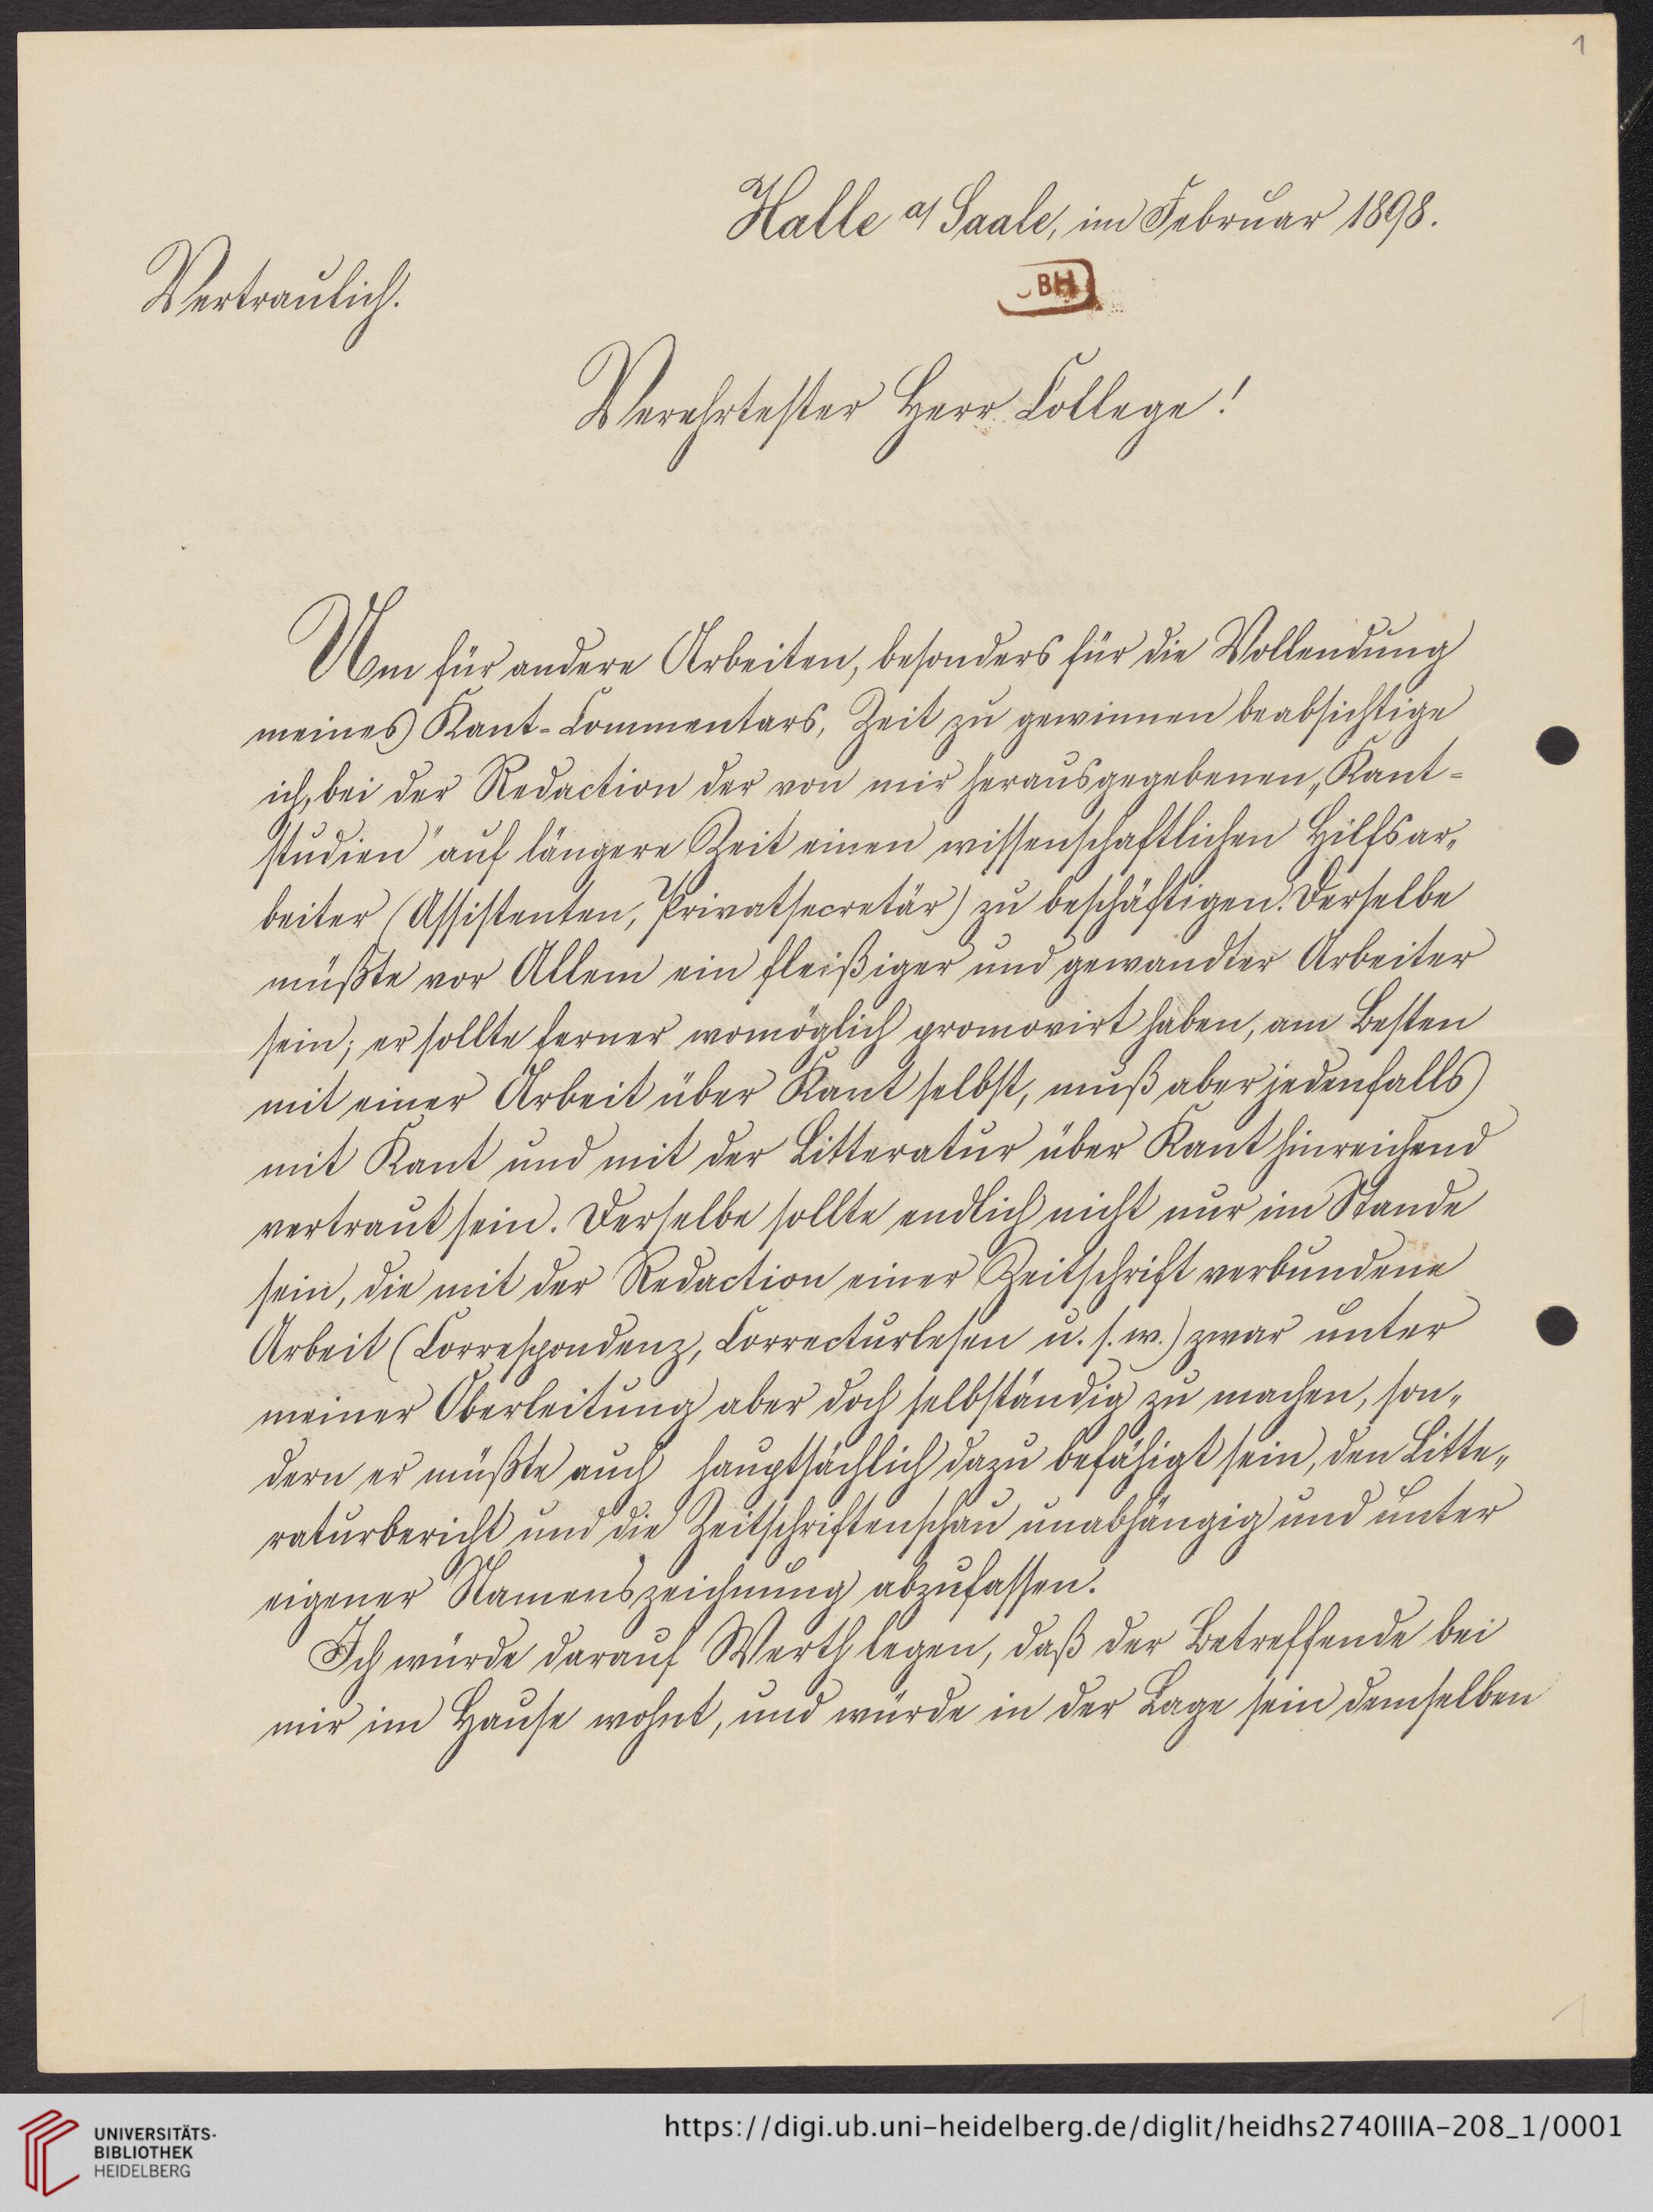 1
Halle a/ Saale, im Februar 1898.
Vertraulich.
BH
Verehrtester Herr College!
Um für andere Arbeiten, besonders für die Vollendung
meines Kant-Commentars, Zeit zu gewinnen beabsichtige
ich, bei der Redaction der von mir herausgegebenen „Kant-
studien" auf längere Zeit einen wissenschaftlichen Hilfsar„
beiter (Assistenten, Privatsecretär) zu beschäftigen. Derselbe
müßte vor Allem ein fleißiger und gewandter Arbeiter
sein; er sollte ferner womöglich promovirt haben, am Besten
mit einer Arbeit über Kant selbst, muß aber jedenfalls
mit Kant und mit der Litteratur über Kant hinreichend
vertraut sein. Derselbe sollte endlich nicht nur im Stande
sein, die mit der Redaction einer Zeitschrift verbundene
Arbeit (Correspondenz, Correcturlesen u. s. w.) zwar unter
meiner Oberleitung aber doch selbständig zu machen, son„
dern er müßte auch hauptsächlich dazu befähigt sein, den Litte„
raturbericht und die Zeitschriftenschau unabhängig und unter
eigener Namenszeichnung abzufassen.
Ich würde darauf Werth legen, daß der Betreffende bei
mir im Hause wohnt, und würde in der Lage sein demselben
1
UNIVERSITÄTS-
BIBLIOTHEK
HEIDELBERG
https://digi.ub.uni-heidelberg.de/diglit/heidhs2740IIIA-208_1/0001